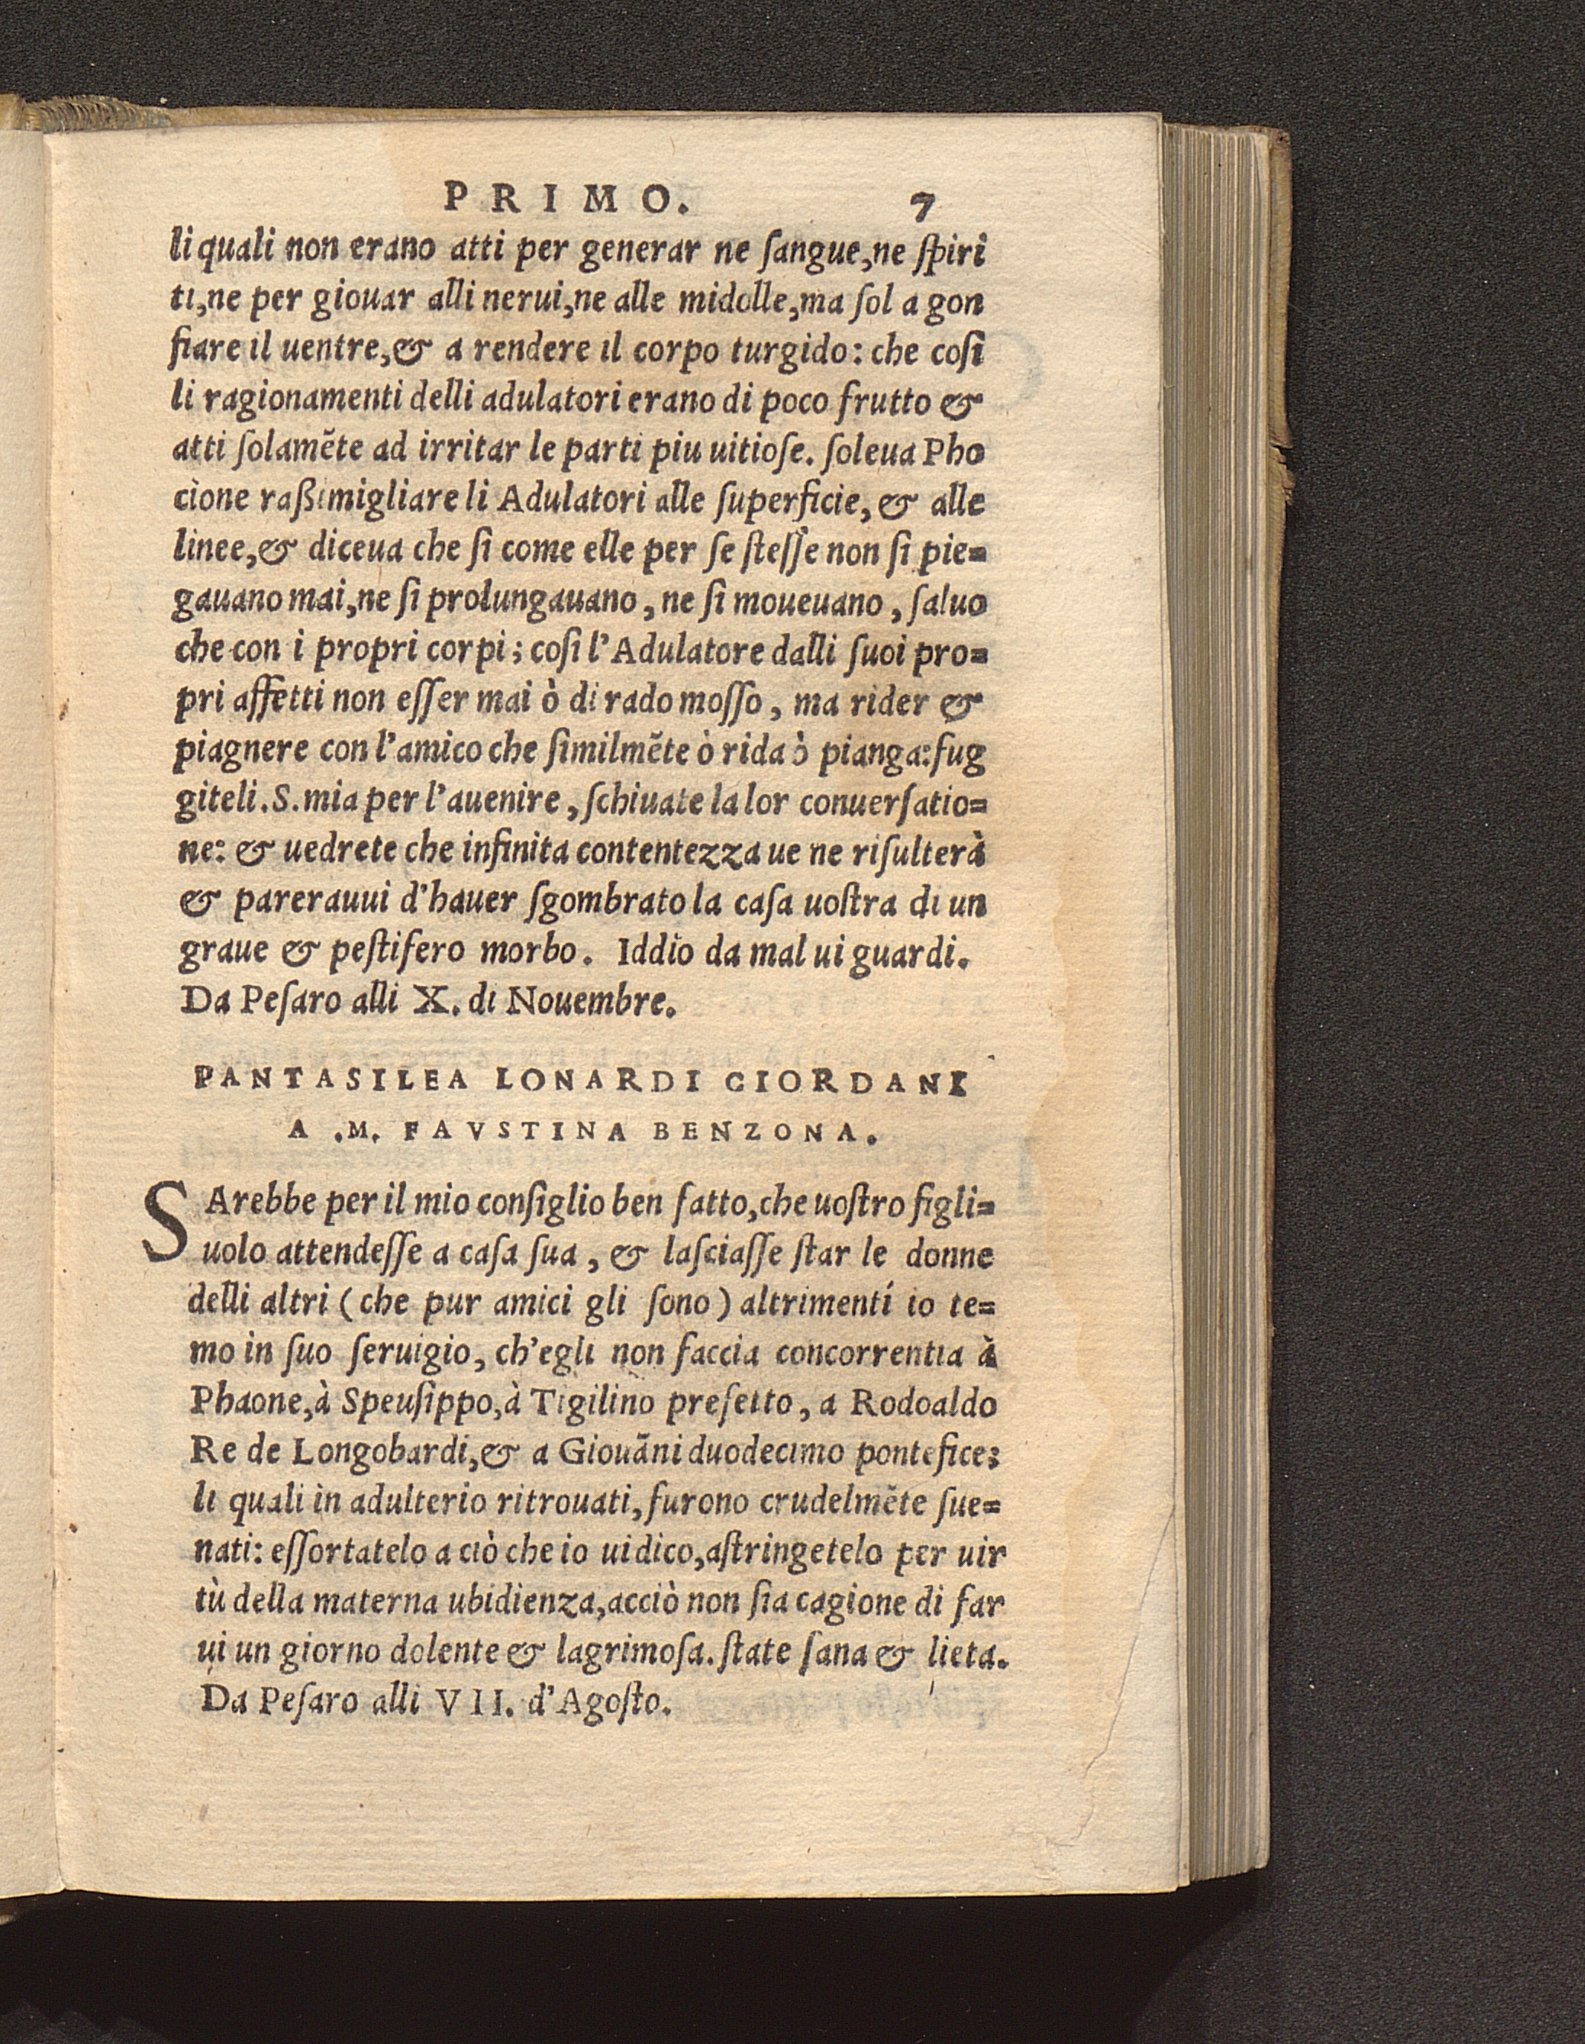 PRIMO. 7
li quali non erano atti per generar ne ſangue,ne ſpiri
ti,ne per giouar alli nerui,ne alle midolle,ma ſol a gon
fiare il uentre,& a rendere il corpo turgido: che coſi
li ragionamenti delli adulatori erano di poco frutto &
atti ſolamẽte ad irritar le parti piu uitioſe. ſoleua Pho
cione raßimigliare li Adulatori alle ſuperficie, & alle
linee,& diceua che ſi come elle per ſe ſteſſe non ſi pie=
gauano mai,ne ſi prolungauano, ne ſi moueuano, ſaluo
che con i propri corpi; coſi l'Adulatore dalli ſuoi pro=
pri affetti non eſſer mai ò di rado moſſo, ma rider &
piagnere con l'amico che ſimilmẽte ò rida ò pianga:fug
giteli.S.mia per l'auenire, ſchiuate la lor conuerſatio=
ne: & uedrete che infinita contentezza ue ne riſulterà
& parerauui d'hauer ſgombrato la caſa uoſtra di un
graue & peſtifero morbo. Iddio da mal ui guardi.
Da Peſaro alli X. di Nouembre.
PANTASILEA LONARDI GIORDANI
A .M. FAVSTINA BENZONA.
SArebbe per il mio conſiglio ben fatto,che uoſtro figli=
uolo attendeſſe a caſa ſua, & laſciaſſe ſtar le donne
delli altri (che pur amici gli ſono) altrimentí io te=
mo in ſuo ſeruigio, ch'egli non faccia concorrentia à
Phaone,à Speuſippo,à Tigilino prefetto, a Rodoaldo
Re de Longobardi,& a Giouãni duodecimo pontefice;
li quali in adulterio ritrouati,furono crudelmẽte ſue=
nati: eſſortatelo a ciò che io ui dico,aſtringetelo per uir
tù della materna ubidienza,acciò non ſia cagione di far
ui un giorno dolente & lagrimoſa.ſtate ſana & lieta.
Da Peſaro alli VII. d'Agoſto.